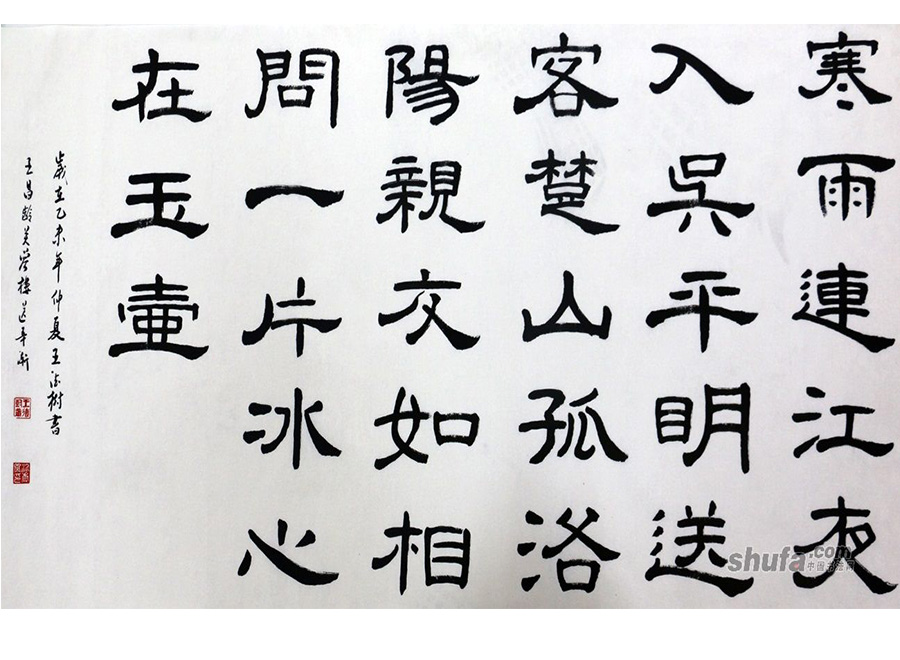 寒雨連江夜
入吳平眀送
客楚山孤洛
陽親友如相
問一片冰心
在玉壺
歲在乙未年仲夏王樹書
王昌齡芙蓉樓送辛漸
shufa.com
中国书法网